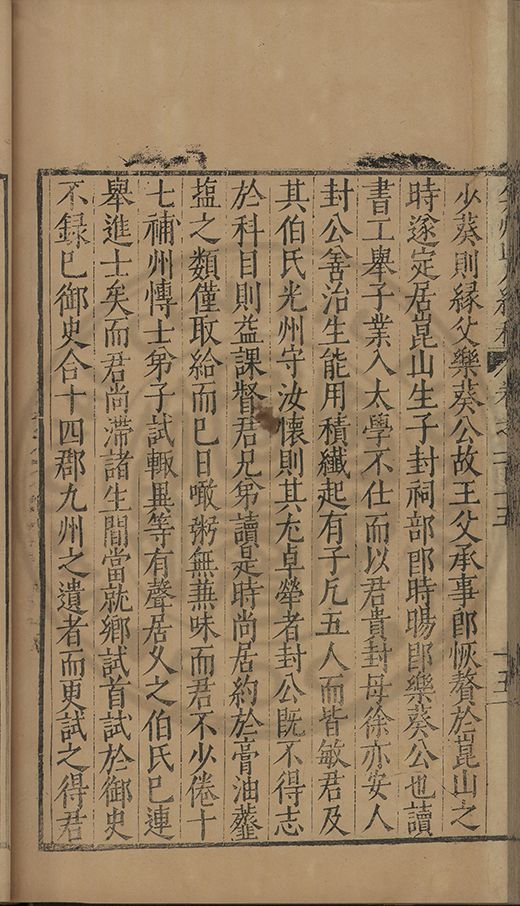 少葵則緣父樂葵公故王父承事郎恢贅於崑山之
時遂定居崑山生子封祠部郎時暘郎樂葵公也讀
書工舉子業入太學不仕而以君貴封母徐亦安人
封公善治生能用積纖起有子凡五人而皆敏君及
其伯氏光州守汝懷則其尤卓犖者封公旣不得志
於科目則益課督君兄弟讀是時尚居約於膏油虀
塩之類僅取給而已日噉粥無兼味而君不少倦十
七補州愽士弟子試輙異等有聲居久之伯氏已連
舉進士矣而君尚滯諸生間當就鄉試首試於御史
不録已御史合十四郡九州之遺者而更試之得君